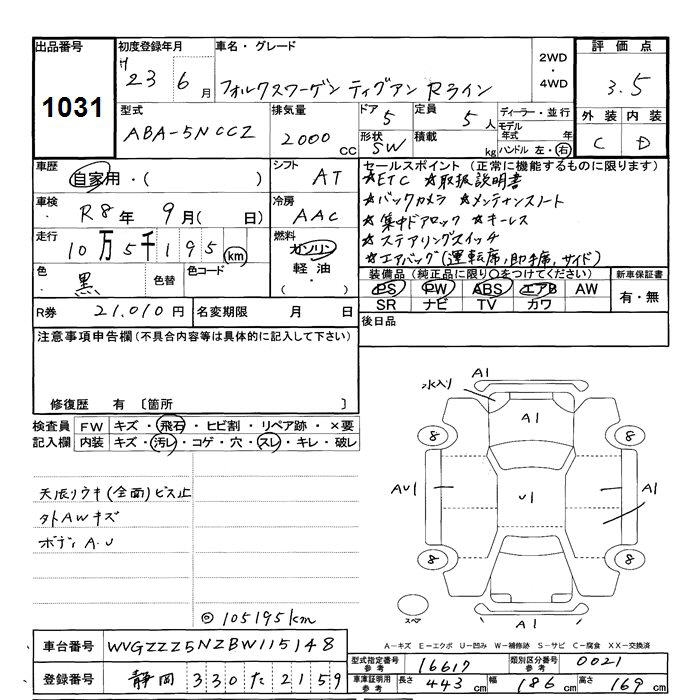 出品番号 初度登録年月 車名・グレード 2WD・4WD 評価点
1031 H 23 6月 フォルクスワーゲン ティグアン Rライン 3.5
型式 排気量 ドア 定員 ディーラー・並行 外装 内装
ABA-5NCCZ 2000 CC 5 5人 モデル年式 年
形状 SW 積載 kg ハンドル 左・右 C D
車歴 自家用・( ) シフト AT セールスポイント (正常に機能するものに限ります)
★ETC ★取扱説明書
車検 R8年 9月( 日) 冷房 AAC ★バックカメラ ★メンテインスノート
★集中ドアロック ★キーレス
走行 10万5千195 km 燃料 ガソリン 軽油 ( ) ★ステアリングスイッチ
★エアバッグ(運転席,助手席,サイド)
色 黒 色替 色コード 装備品 (純正品に限り○をつけてください) 新車保証書
PS PW ABS エアB AW 有・無
SR ナビ TV カワ
R券 21,010円 名変期限 月 日 後日品
注意事項申告欄 (不具合内容等は具体的に記入して下さい)
修復歴 有 〔箇所 〕
検査員記入欄 FW キズ・飛石・ヒビ割・リペア跡・×要
内装 キズ・汚レ・コゲ・穴・スレ・キレ・破レ
天張リウキ(全面)ビス止
外AWキズ
ボディA.U
◎105195km
水入り A1
A1
8 8
AU1 U1 A1
8 8
スペア A1
A−キズ E−エクボ U−凹み W−補修跡 S−サビ C−腐食 XX−交換済
車台番号 WVGZZZ5NZBW115148 型式指定番号 参考 16617 類別区分番号 参考 0021
登録番号 静岡 330 た 2159 車庫証明用 参考 長さ 443cm 幅 186cm 高さ 169cm